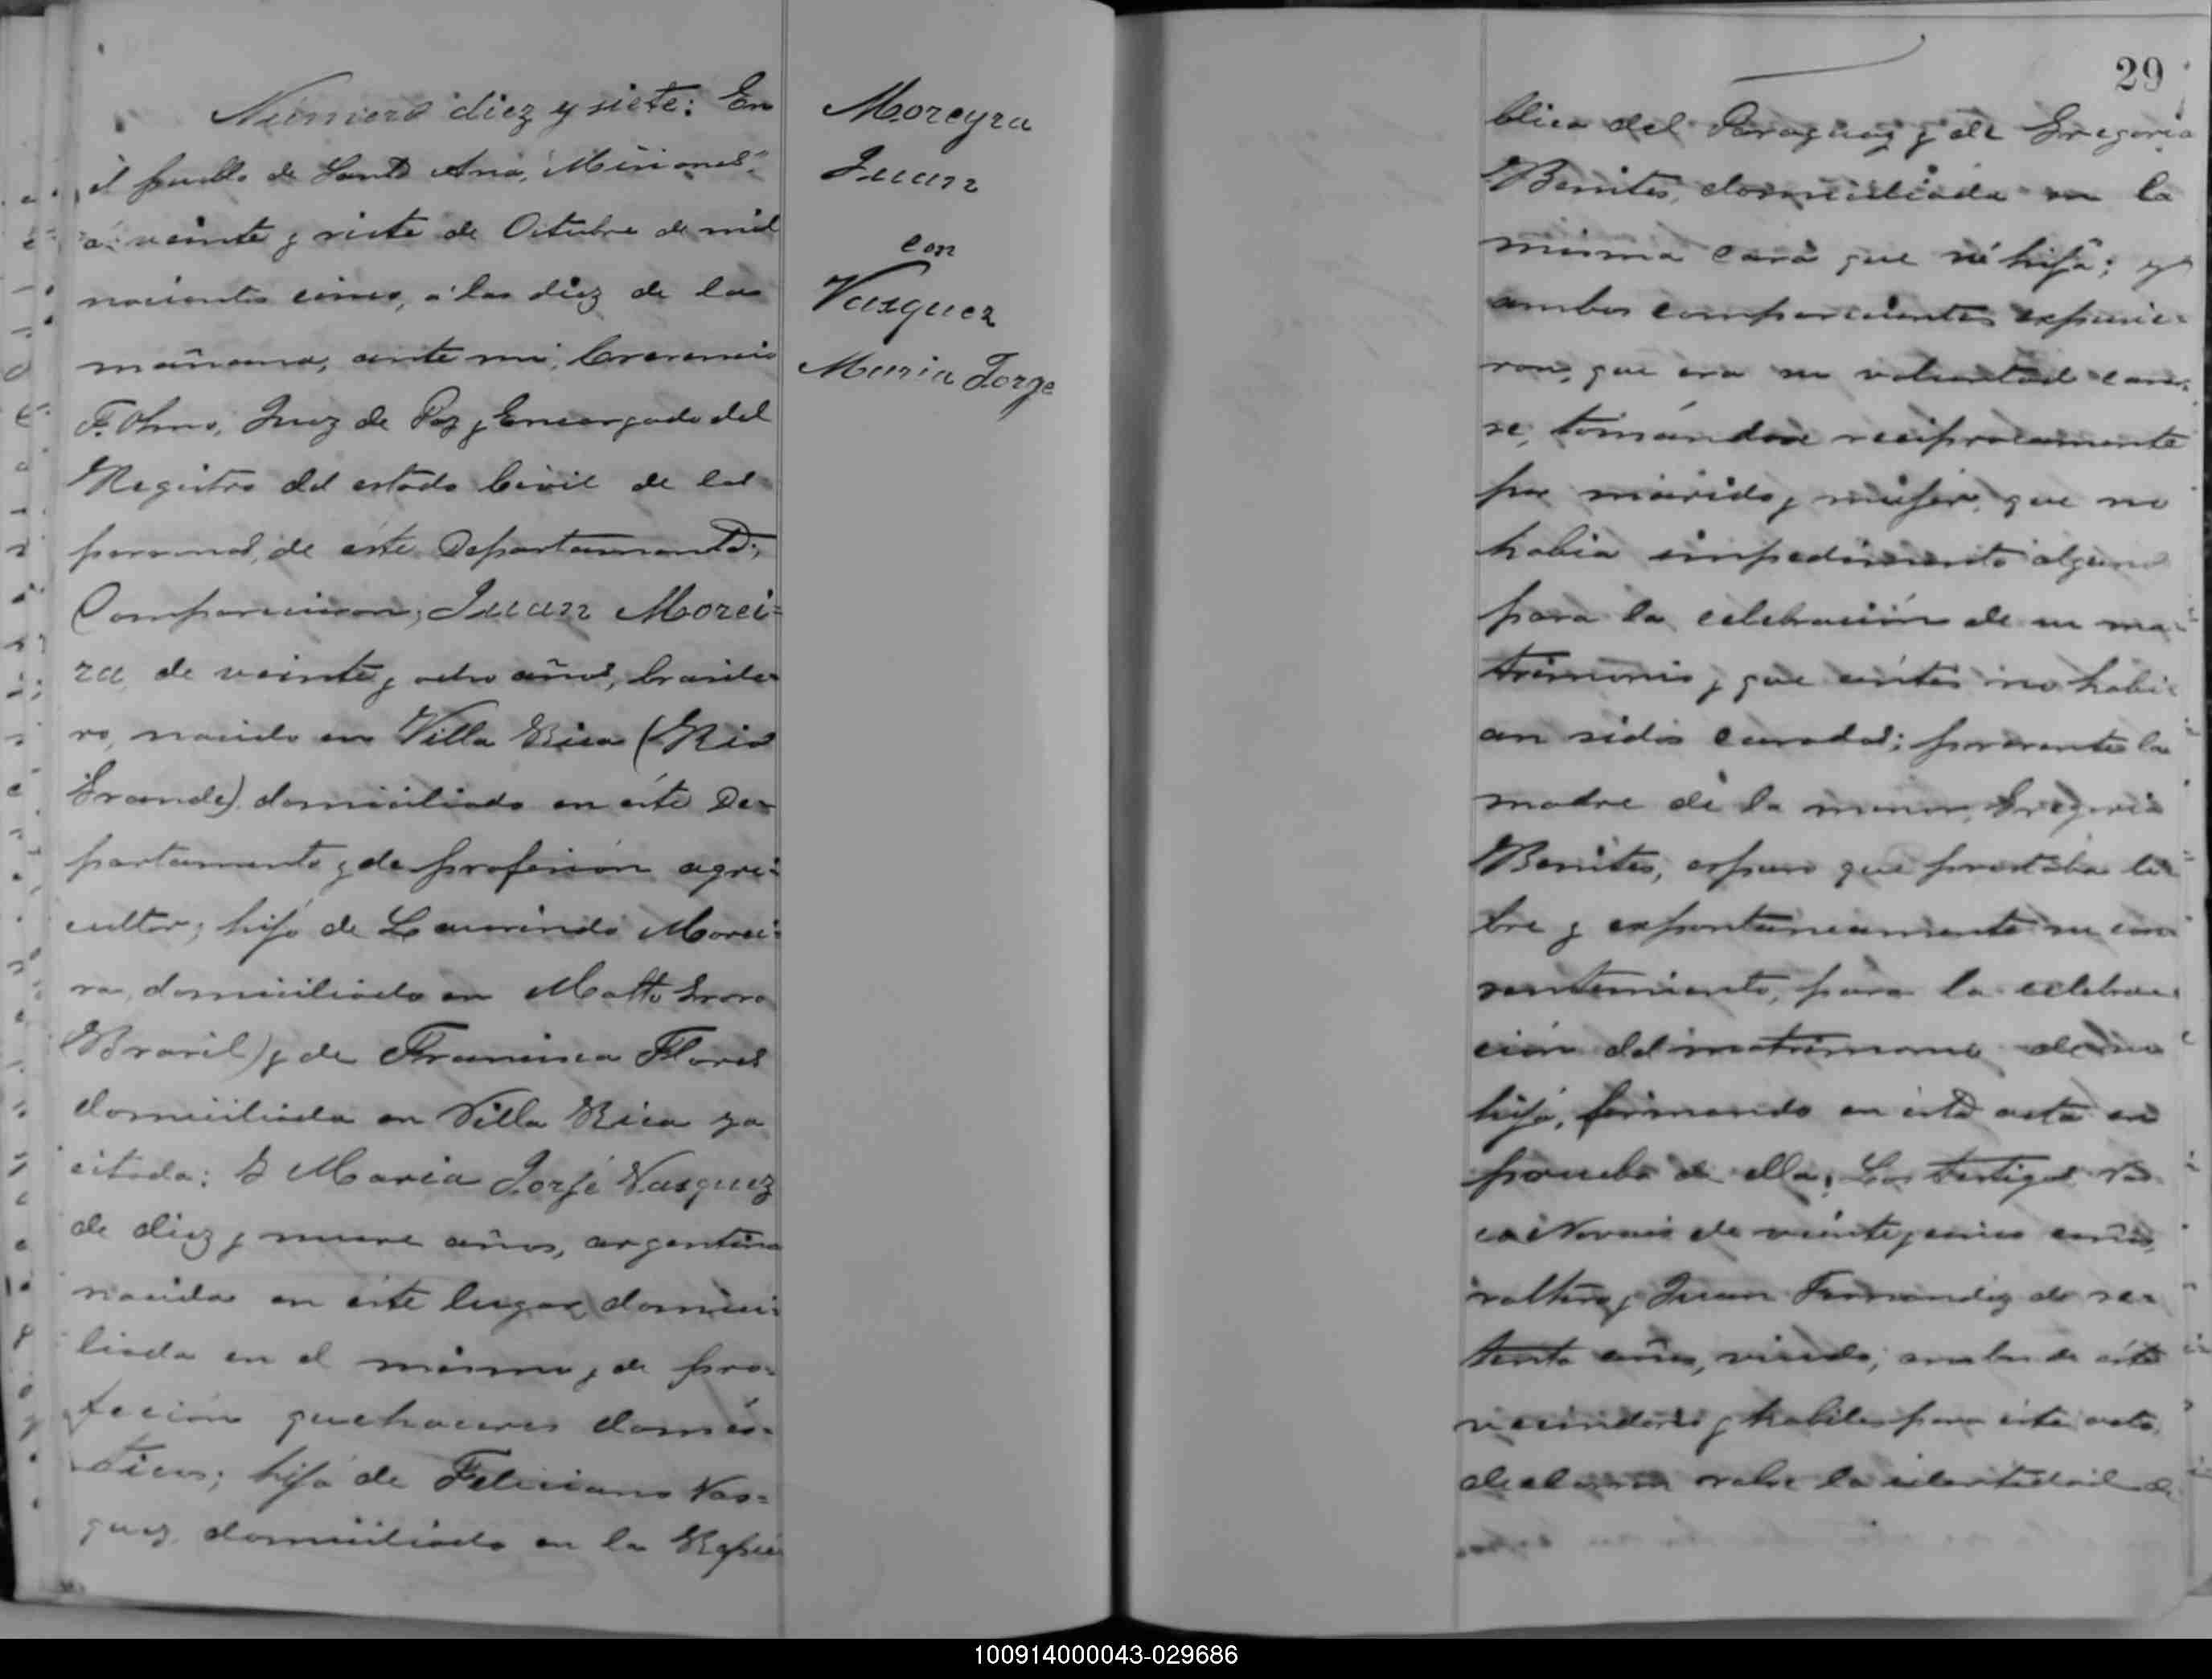 Número diez y siete: En
el pueblo de Santa Ana, Misiones,
á veinte y siete de Octubre de mil
novecientos cinco, á las diez de la
mañana, ante mi,
F. Olmo, Juez de Paz y Encargado del
Registro del estado Civil de las
personas, de éste Departamento,
Comparecieron, Juan Morei=
ra de veinte y ocho años, brasile
ro, nacido en Villa Rica (Rio
Grande) domiciliado en éste De=
partamento y de profesion agri=
cultor; hijo de Laurindo Morei=
ra, domiciliado en Matto Groso
(Brasil) y de Francisca Flores
domiciliada en Villa Rica ya
citada: y Maria Jorje Vasquez
de diez y nueve años, argentina
nacida en éste lugar, domici=
liada en el mismo y de pro=
feción quehaceres domés=
ticos; hija de Feliciano Vas=
quez, domiciliado en la Repú
Moreyra
Juan
con
Vasquez
Maria Jorge
29
blica del Paraguay y de Gregoria
Benites, domiciliada en la
misma casa que su hija; y
ambos comparecientes expusie=
ron, que era su voluntad casar
se, tomándose reciprocamente
por marido y mujer, que no
habia impedimento alguno
para la celebración de su ma=
trimonio y que antes no habi=
an sidos casados; presente la
madre de la menor, Gregoria
Benites, expuso que prestaba li=
bre y espontaneamente su con
sentimiento, para la celebra=
ción del matrimonio de su
hija, firmando en esta acta en
prueba de ella; Los testigos
de veinte y cinco años,
soltero y Juan Fernandez de se=
tenta años, viudo; ambos de éste
vecindario y habiles para éste acto,
declararon sobre la identidad de
100914000043-029686